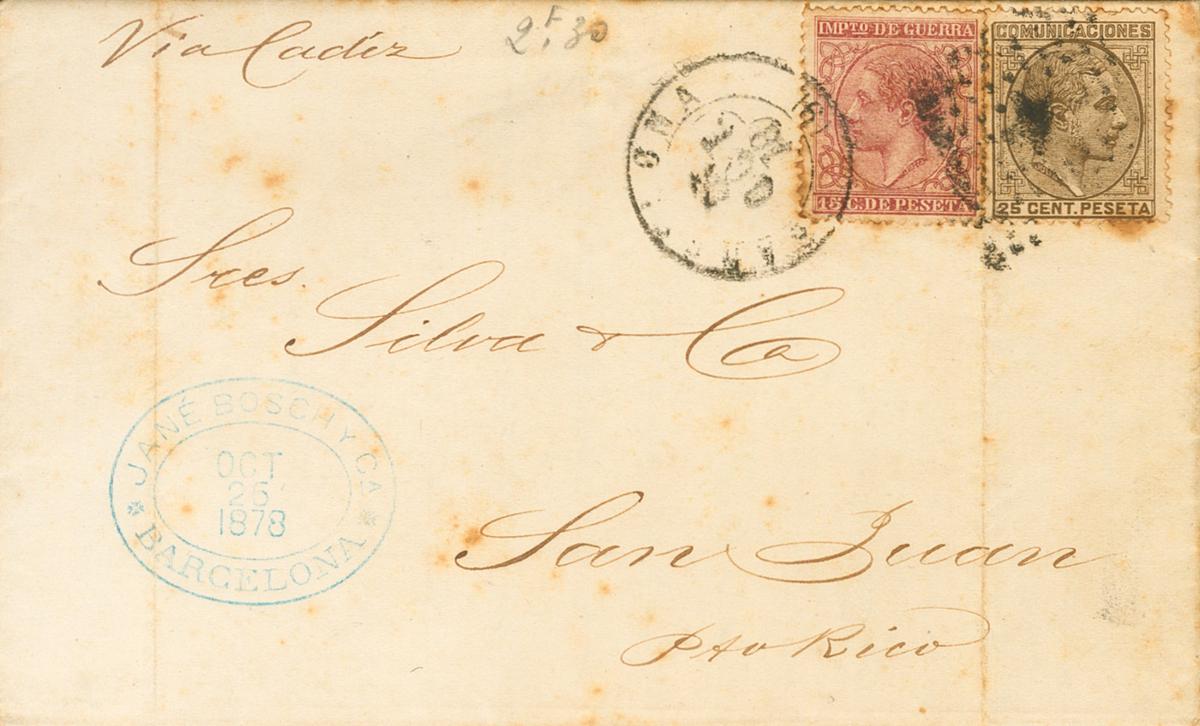 Via Cadiz
2F.30
IMPTO. DE GUERRA
15 C. DE PESETA
COMUNICACIONES
25 CENT. PESETA
Sres.
Silva & Ca
JANÉ BOSCH Y CA
OCT
26
1878
BARCELONA
San Juan
Pto Rico